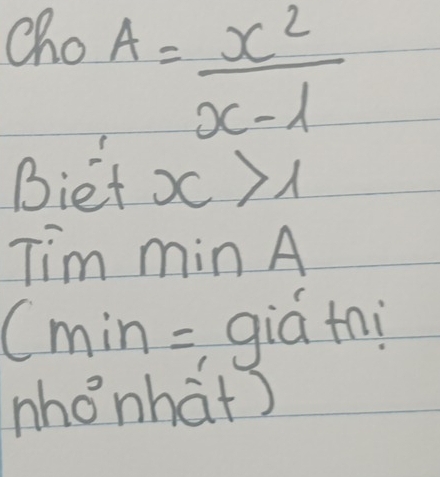 Cho A = x²/(x-1)
Biết x > 1
Tìm min A
(min = giá trị
nhỏ nhất)